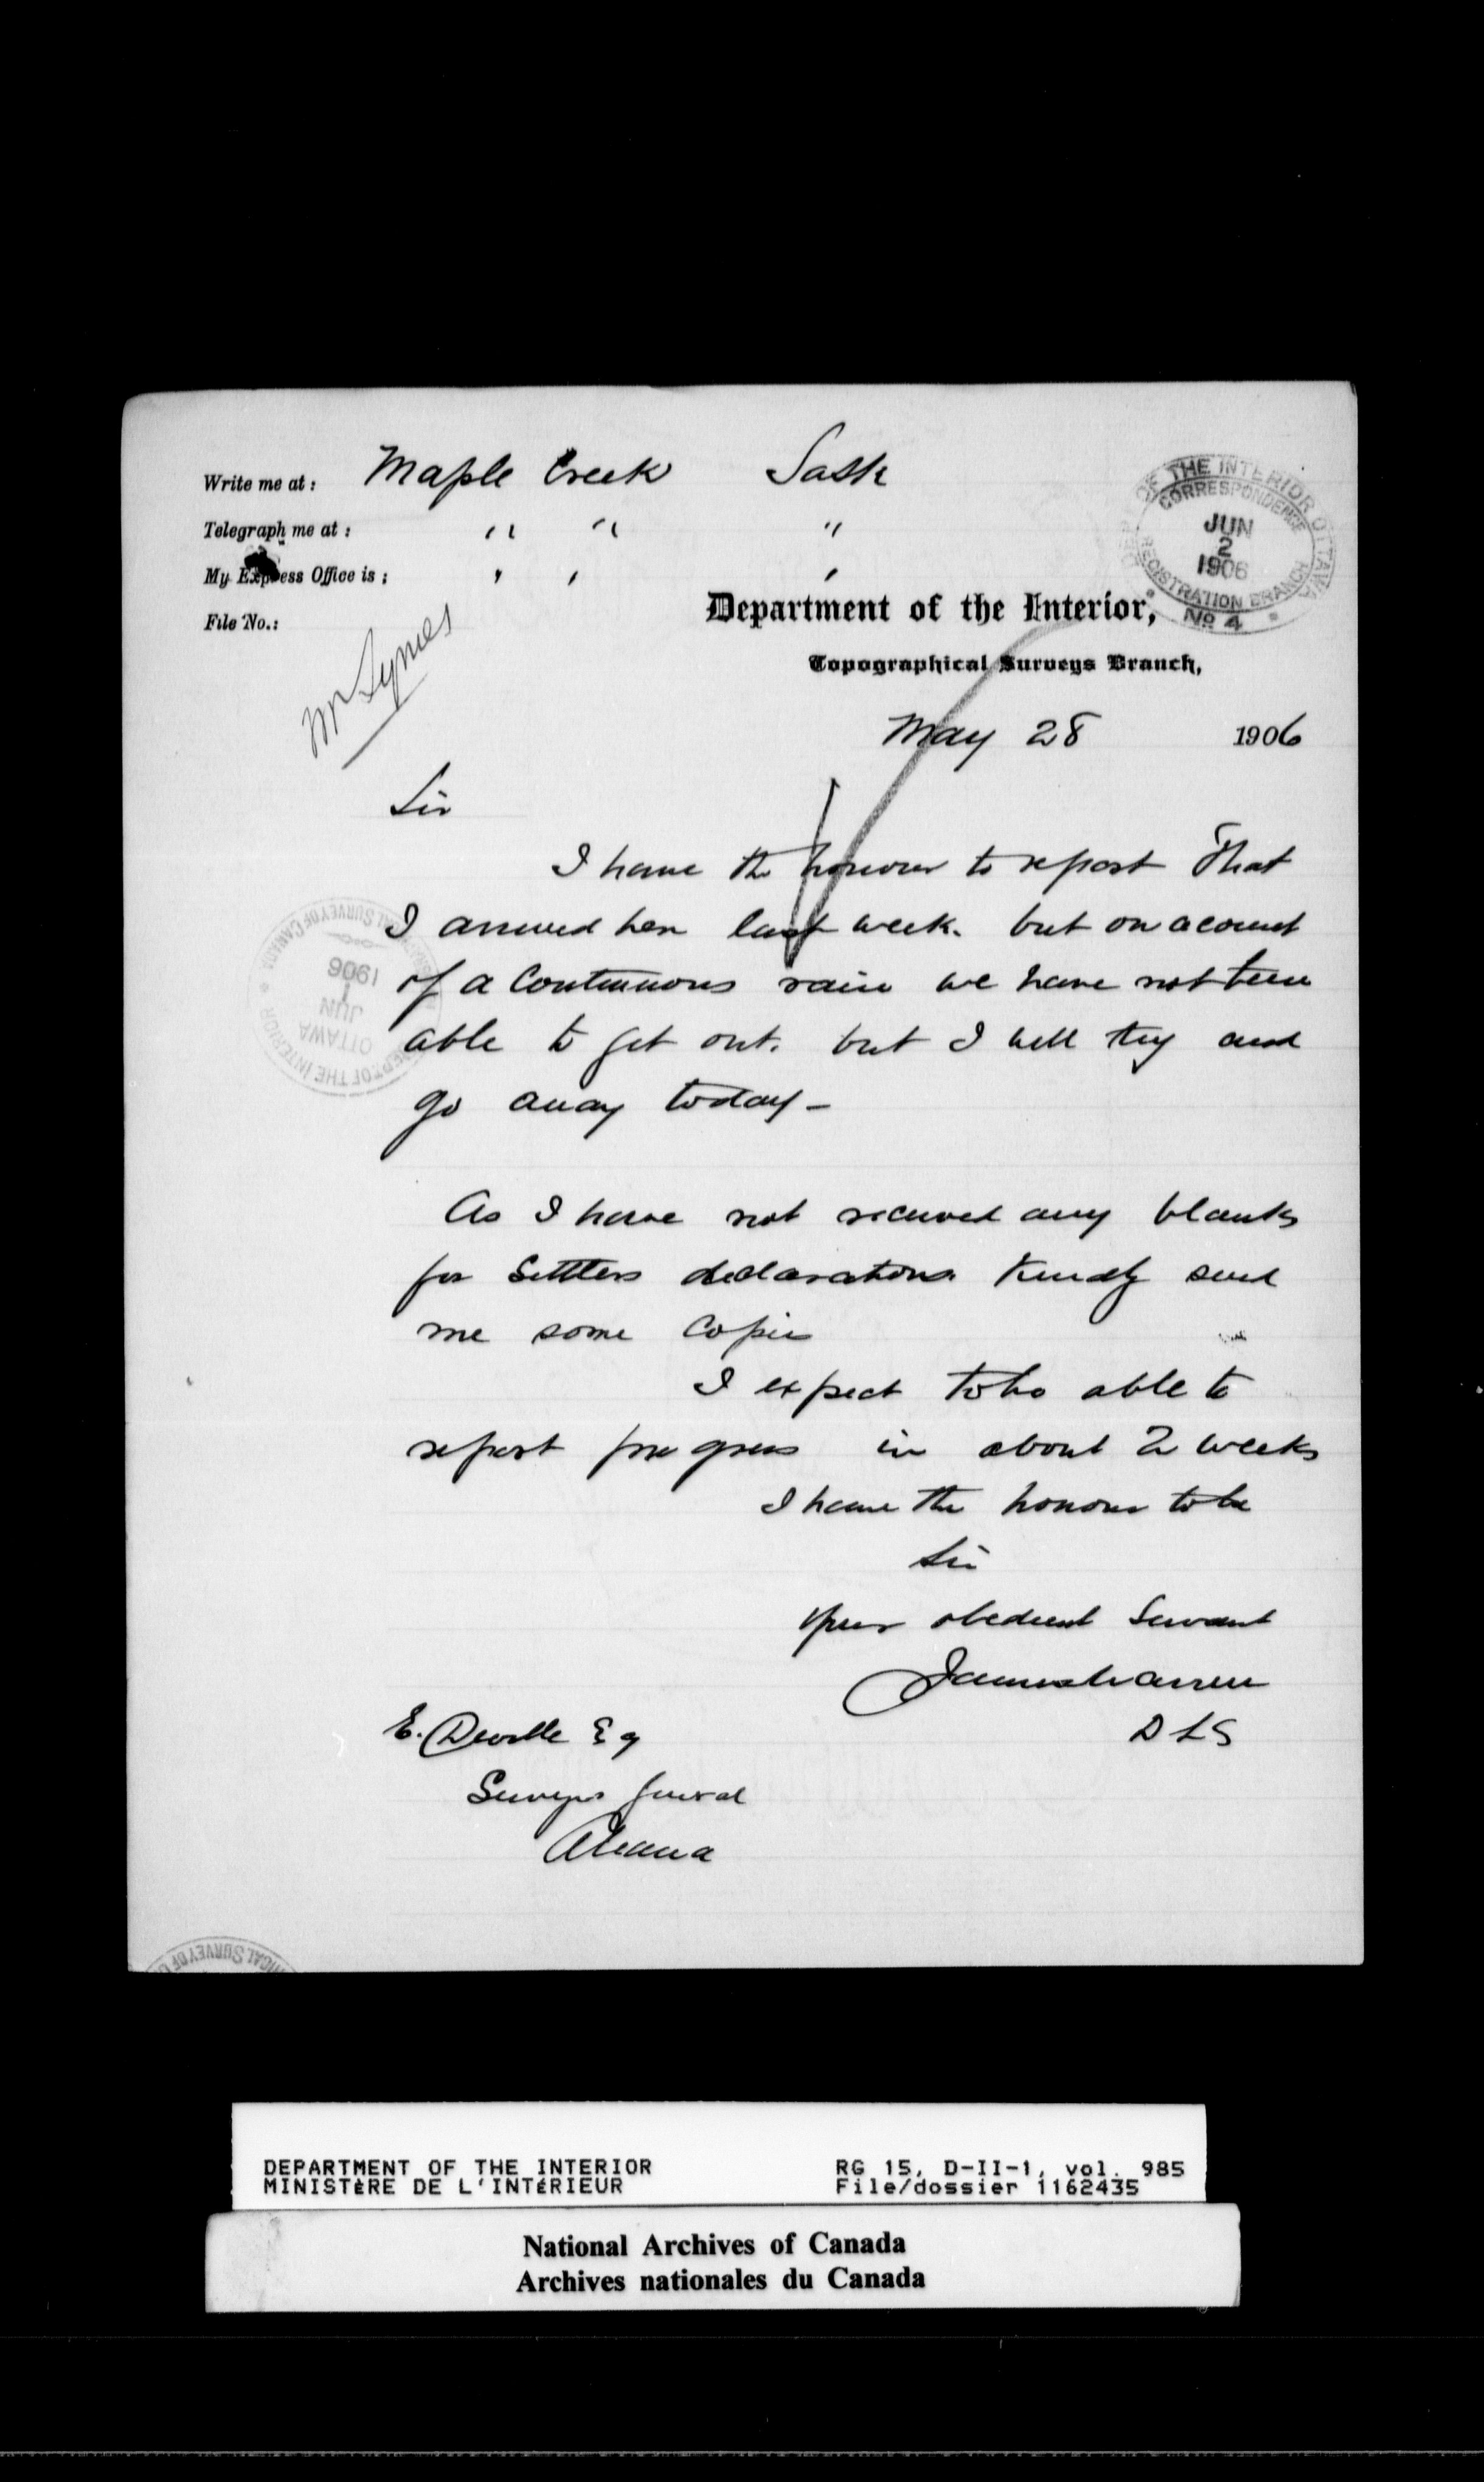 Write me at: Maple Creek Sask
Telegraph me at: " " "
My Express Office is: " " "
File No.:
Mr Symes
DEPT OF THE INTERIOR OTTAWA
CORRESPONDENCE
JUN
2
1906
REGISTRATION BRANCH
No 4
Department of the Interior,
Topographical Surveys Branch,
May 28 1906
Sir
I have the honour to report That
I arrived here last week. but on acount
of a Continuous rain we have not been
able to get out. but I will try and
go away today -
TOPOGRAPHICAL SURVEY OF CANADA
1906
1
JUN
OTTAWA
DEPT OF THE INTERIOR
As I have not received any blanks
for Settlers declarations Kindly send
me some Copies
I expect to be able to
report progress in about 2 weeks
I have the honour to be
Sir
Your obedient Servant
James Warren
D L S
E. Deville Esq
Surveyor General
Ottawa
DEPARTMENT OF THE INTERIOR
MINISTÈRE DE L'INTÉRIEUR
RG 15, D-II-1, vol. 985
File/dossier 1162435
National Archives of Canada
Archives nationales du Canada